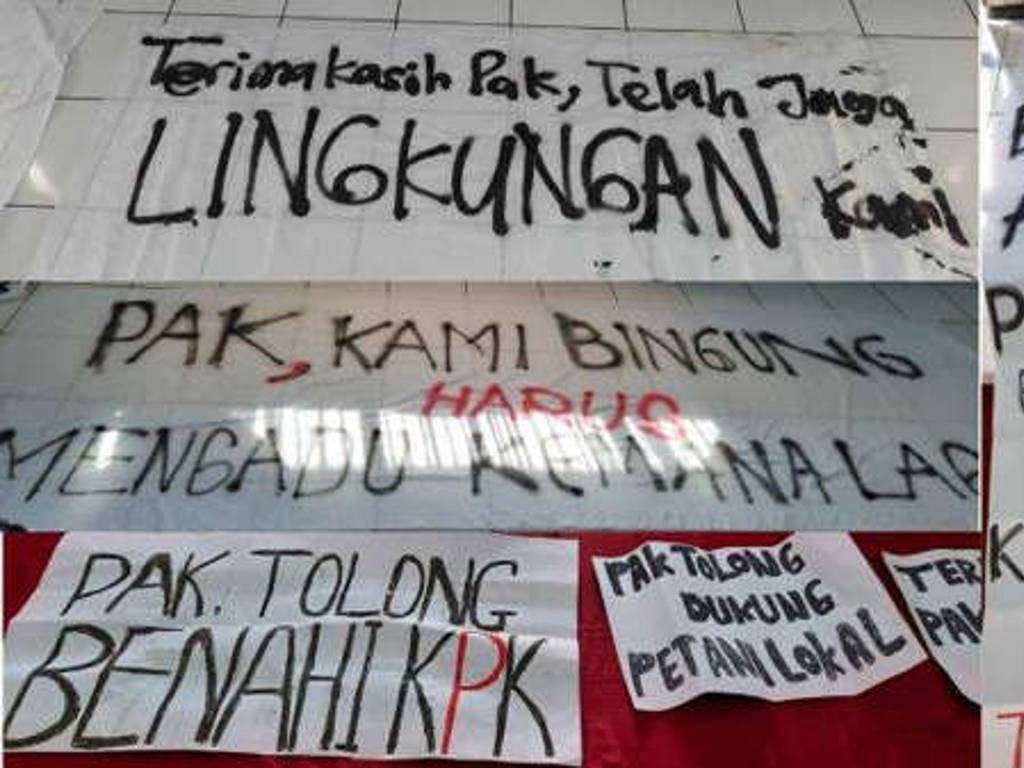 Terimakasih Pak, Telah Jaga
LINGKUNGAN Kami
PAK, KAMI BINGUNG
HARUS
MENGADU KEMANA LAG
PAK. TOLONG
BENAHI KPK
PAK TOLONG
DUKUNG
PETANI LOKAL
TER
PAK